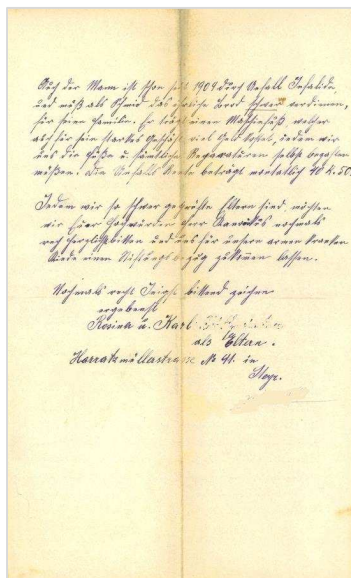 Auch der Mann ist schon seit 1909 durch Unfall Invalide,
und muß als Schmid das ehrliche Brod schwer verdienen,
für seine Familie. Er trägt einen Maschinfuß welcher
auch für sein starkes Geschäft viel Geld kostet, indem wir
uns die Füße u. sämtliche Reparaturen selbst bezahlen
müßen. Die Unfall Rente beträgt monatlich 40 K. 50.
Indem wir so schwer geprüfte Eltern sind möchten
wir Euer Hochwürden Herr nochmals
recht herzlich bitten und uns für unsern armen kranken
Kinde einen Stiftungs bezug zukomen lassen.
Nochmals recht bittend zeichnen
ergebenst
Rosina u. Karl
als Eltern.
Harratzmüllerstrasse № 41. in
Steyr.